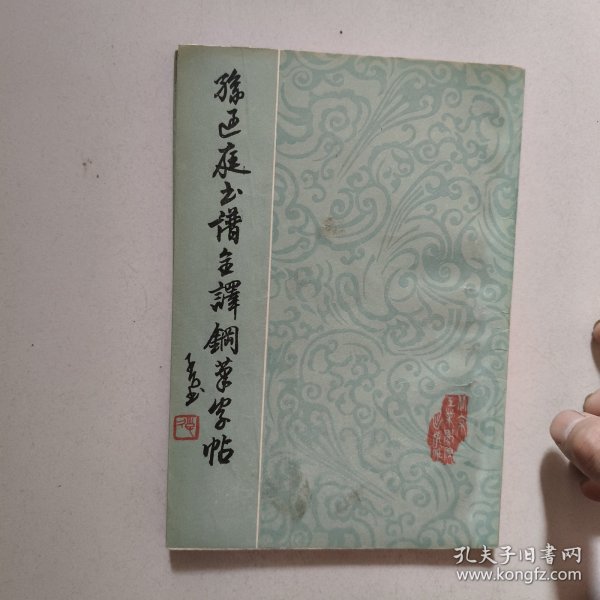 孫过庭书譜全譯鋼筆字帖
孔夫子旧書网
www.kongfz.com